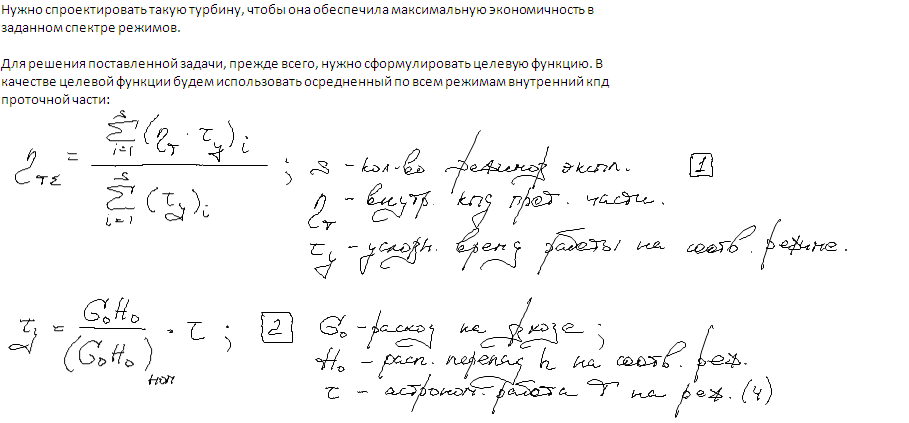 Нужно спроектировать такую турбину, чтобы она обеспечила максимальную экономичность в
заданном спектре режимов.
Для решения поставленной задачи, прежде всего, нужно сформулировать целевую функцию. В
качестве целевой функции будем использовать осредненный по всем режимам внутренний кпд
проточной части:
η_тΣ = Σ_{i=1}^{s} (η_т · τ_у)_i / Σ_{i=1}^{s} (τ_у)_i ; s - кол-во режимов экспл. 1
η_т - внутр. кпд прот. части.
τ_у - условн. время работы на соотв. режиме.
τ_у = G₀H₀ / (G₀H₀)_ном · τ ; 2 G₀ - расход на входе;
H₀ - расп. перепад h на соотв. реж.
τ - астроном. работа Т на реж. (ч)